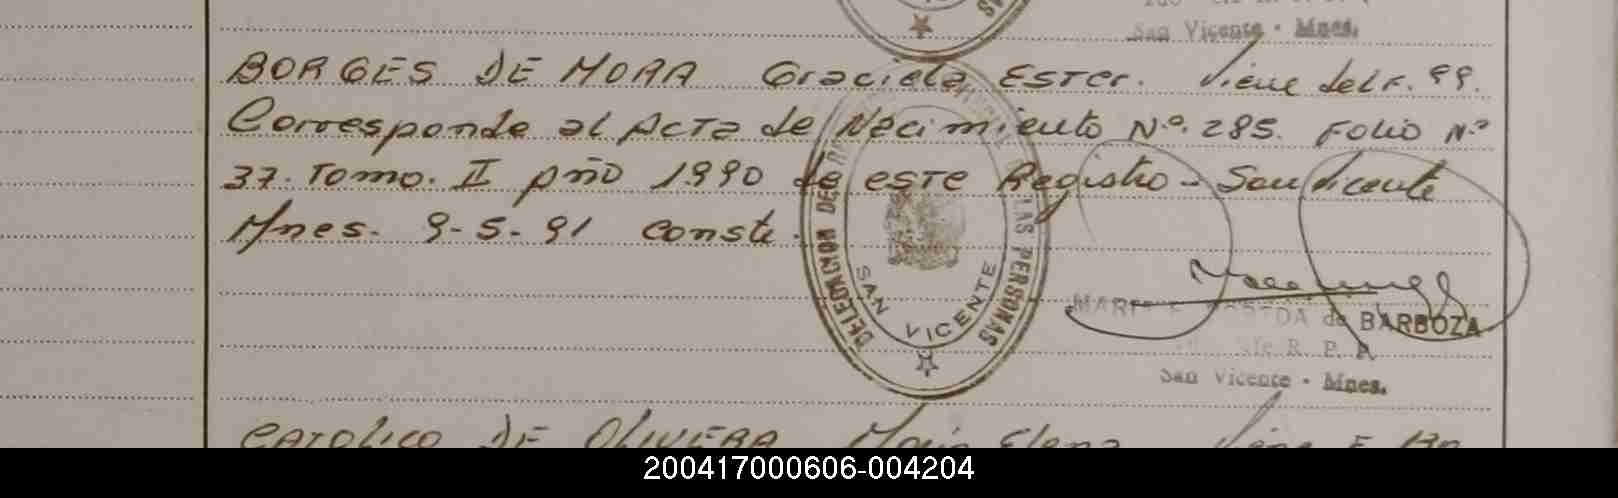 San Vicente - Mnes.
BORGES DE MORA Graciela Ester. Viene del F. 99.
Corresponde al Acta de Nacimiento Nº. 285. Folio Nº
37. Tomo. II Año 1990 de este Registro - San Vicente
Mnes. 9-5-91 conste.
DELEGACION DE LAS PERSONAS
SAN VICENTE
de BARBOZA
R. P. 
San Vicente - Mnes.
CATOLICO DE OLIVERA María Elena Viene F.
200417000606-004204